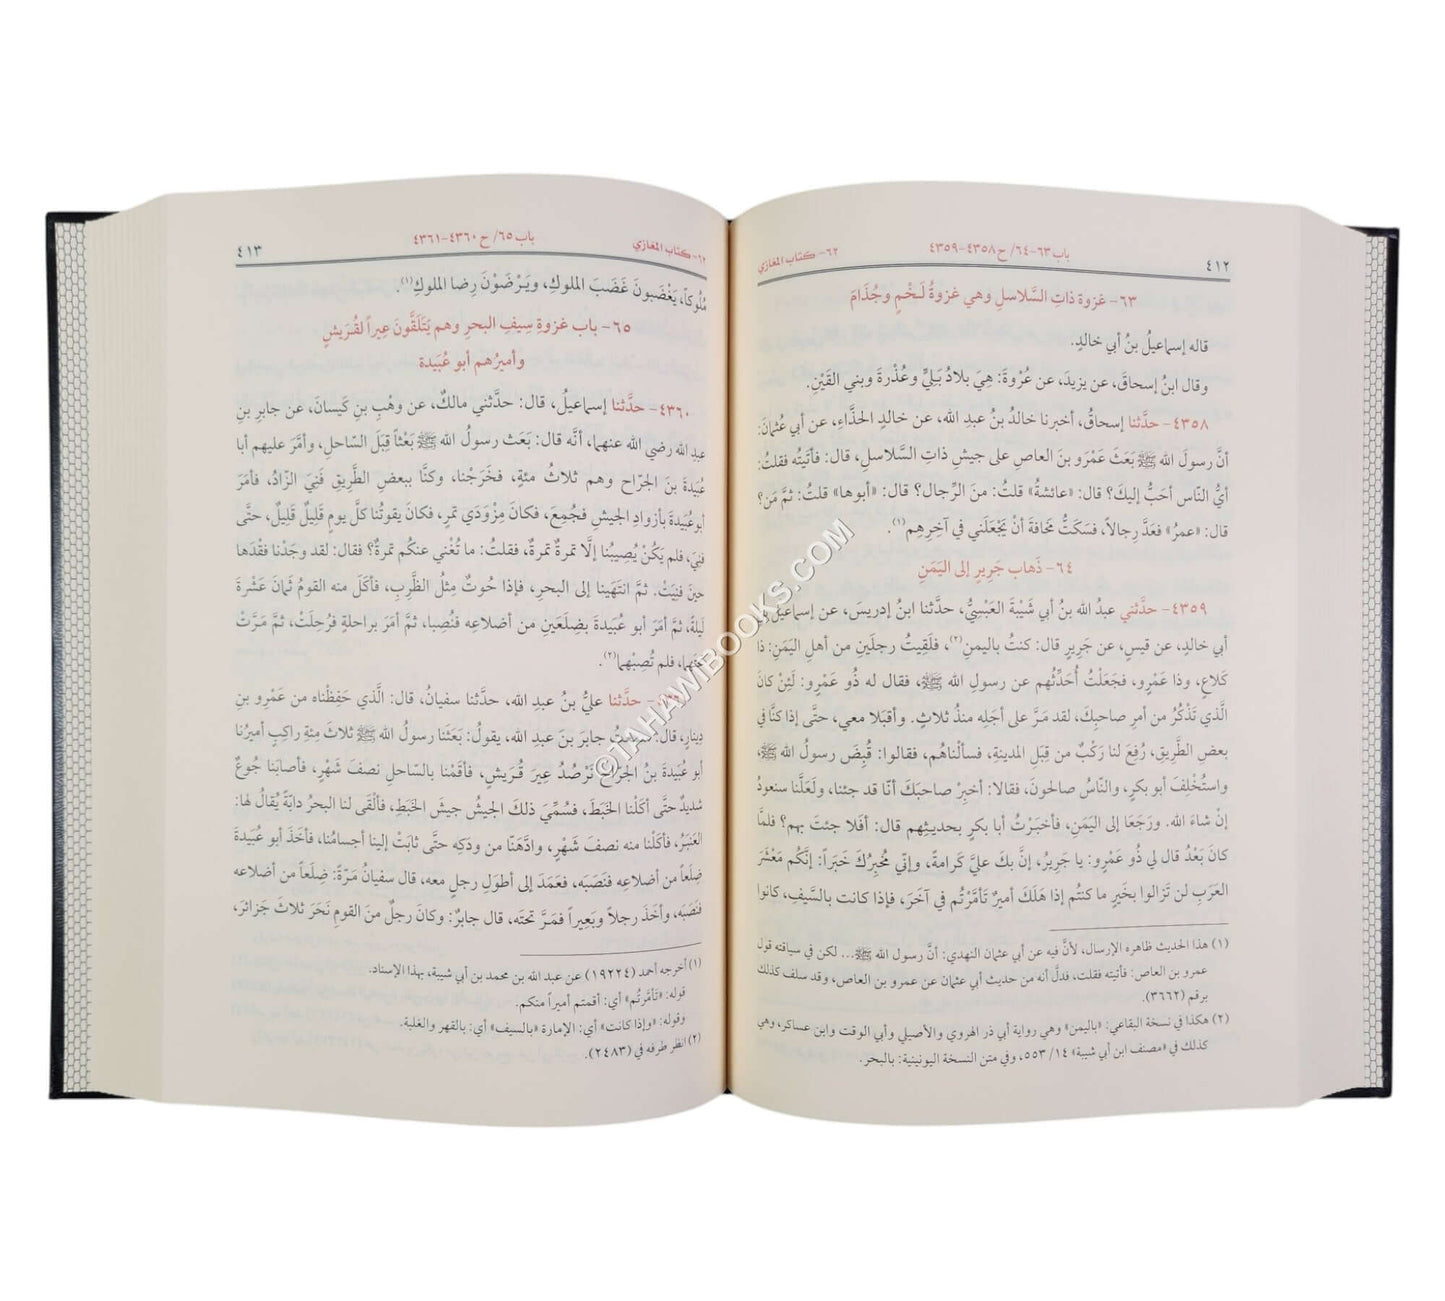 ٤١٢
باب ٦٣-٦٤/ ح ٤٣٥٨-٤٣٥٩
٦٢- كتاب المغازي
٦٣- غزوة ذاتِ السَّلاسلِ وهي غزوةُ لَـخْمٍ وجُذَامَ
قاله إسماعيلُ بنُ أبي خالدٍ.
وقال ابنُ إسحاقَ، عن يزيدَ، عن عُرْوةَ: هِيَ بلادُ بَلِيٍّ وعُذْرةَ وبني القَيْنِ.
٤٣٥٨- حدَّثنا إسحاقُ، أخبرنا خالدُ بنُ عبد الله، عن خالدٍ الحذَّاءِ، عن أبي عُثمانَ:
أنَّ رسولَ الله ﷺ بَعَثَ عَمْرَو بنَ العاصِ على جيشِ ذاتِ السَّلاسلِ، قال: فأتيتُه فقلتُ:
أيُّ النّاس أحَبُّ إليكَ؟ قال: «عائشةُ» قلتُ: منَ الرِّجال؟ قال: «أبوها» قلتُ: ثمَّ مَن؟
قال: «عمرُ» فعَدَّ رجالاً، فسَكَتُّ مَخافةَ أنْ يَجْعَلَني في آخِرِهِم(١).
٦٤- ذَهاب جَرِيرٍ إلى اليَمَنِ
٤٣٥٩- حدَّثني عبدُ الله بنُ أبي شَيْبةَ العَبْسِيُّ، حدَّثنا ابنُ إدريسَ، عن إسماعيلَ بنِ
أبي خالدٍ، عن قيسٍ، عن جَرِيرٍ قال: كنتُ باليمنِ(٢)، فلَقِيتُ رجلَينِ من أهلِ اليَمَنِ: ذا
كَلاعٍ، وذا عَمْرٍو، فجَعَلْتُ أُحَدِّثُهم عن رسولِ الله ﷺ، فقال له ذُو عَمْرٍو: لَئِنْ كانَ
الَّذي تَذْكُرُ من أمرِ صاحبِكَ، لقد مَرَّ على أجَلِه منذُ ثلاثٍ. وأقبَلا معي، حتَّى إذا كنَّا في
بعضِ الطَّريقِ، رُفِعَ لنا رَكْبٌ من قِبَلِ المدينةِ، فسألْناهُم، فقالوا: قُبِضَ رسولُ الله ﷺ،
واستُخْلِفَ أبو بكرٍ، والنّاسُ صالحونَ، فقالا: أخبِرْ صاحبَكَ أنّا قد جئنا، ولَعَلَّنا سنعودُ
إنْ شاءَ الله. ورَجَعَا إلى اليَمَنِ، فأخبَرْتُ أبا بكرٍ بحديثِهم قال: أفَلا جئتَ بهم؟ فلمَّا
كانَ بَعْدُ قال لي ذُو عَمْرٍو: يا جَرِيرُ، إنَّ بكَ عليَّ كَرامةً، وإنّي مُخبِرُكَ خَبَراً: إنَّكُم مَعْشَرَ
العَرَبِ لن تَزالوا بخَيرٍ ما كنتُم إذا هَلَكَ أميرٌ تَأمَّرْتُم في آخَرَ، فإذا كانت بالسَّيفِ، كانوا
(١) هذا الحديث ظاهره الإرسال، لأنَّ فيه عن أبي عثمان النهدي: أنَّ رسول الله ﷺ... لكن في سياقته قول
عمرو بن العاص: فأتيته فقلت، فدلَّ أنه من حديث أبي عثمان عن عمرو بن العاص، وقد سلف كذلك
برقم (٣٦٦٢).
(٢) هكذا في نسخة البقاعي: «باليمن» وهي رواية أبي ذر الهروي والأصيلي وأبي الوقت وابن عساكر، وهي
كذلك في «مصنف ابن أبي شيبة» ١٤/ ٥٥٣، وفي متن النسخة اليونينية: بالبحر.
٦٢- كتاب المغازي
باب ٦٥/ ح ٤٣٦٠-٤٣٦١
٤١٣
مُلُوكاً، يَغْضَبونَ غَضَبَ الملوكِ، ويَـرْضَوْنَ رِضا الملوكِ(١).
٦٥- باب غزوةِ سِيفِ البحرِ وهم يَتَلَقَّونَ عِيراً لقُرَيشٍ
وأميرُهم أبو عُبَيدة
٤٣٦٠- حدَّثنا إسماعيلُ، قال: حدَّثني مالكٌ، عن وهْبِ بنِ كَيسانَ، عن جابرِ بنِ
عبدِ الله رضي الله عنهما، أنَّه قال: بَعَث رسولُ الله ﷺ بَعْثاً قِبَلَ السّاحلِ، وأمَّرَ عليهم أبا
عُبَيدةَ بنَ الجَرّاح وهم ثلاثُ مئةٍ، فخَرَجْنا، وكنَّا ببعضِ الطَّريقِ فَنِيَ الزّادُ، فأمَرَ
أبو عُبَيدةَ بأزوادِ الجيشِ فجُمِعَ، فكانَ مِزْوَدَي تمرٍ، فكانَ يقوتُنا كلَّ يومٍ قَليلٌ قَليلٌ، حتَّى
فنِيَ، فلم يَكُنْ يُصِيبُنا إلَّا تمرةٌ تمرةٌ، فقلتُ: ما تُغْني عنكُم تمرةٌ؟ فقال: لقد وجَدْنا فقْدَها
حينَ فنِيَتْ. ثمَّ انتَهَينا إلى البحرِ، فإذا حُوتٌ مِثلُ الظَّرِبِ، فأكَلَ منه القومُ ثَمانَ عَشْرةَ
لَيلةً، ثمَّ أمَرَ أبو عُبَيدةَ بضِلَعَينِ من أضلاعِه فنُصِبا، ثمَّ أمَرَ براحلةٍ فرُحِلَتْ، ثمَّ مَرَّتْ
تحتَهما، فلم تُصِبْهما(٢).
- حدَّثنا عليُّ بنُ عبدِ الله، حدَّثنا سفيانُ، قال: الَّذي حَفِظْناه من عَمْرِو بنِ
دِينارٍ، قال: سَمِعْتُ جابرَ بنَ عبدِ الله، يقولُ: بَعَثَنا رسولُ الله ﷺ ثلاثَ مِئةِ راكبٍ أميرُنا
أبو عُبَيدةَ بنُ الجَرّاحِ نَرْصُدُ عِيرَ قُرَيشٍ، فأقَمْنا بالسّاحلِ نصفَ شَهْرٍ، فأصابَنا جُوعٌ
شديدٌ حتَّى أكَلْنا الخَبَطَ، فسُمِّيَ ذلك الجيشُ جيشَ الخَبَطِ، فألقَى لنا البحرُ دابّةً يُقالُ لها:
العَنبَرُ، فأكَلْنا منه نصفَ شَهْرٍ، وادَّهَنّا من ودَكِه حتَّى ثابَتْ إلينا أجسامُنا، فأخَذَ أبو عُبَيدةَ
ضِلَعاً من أضلاعِه فنَصَبَه، فعَمَدَ إلى أطوَلِ رجلٍ معه، قال سفيانُ مَرّةً: ضِلَعاً من أضلاعِه
فنَصَبَه، وأخَذَ رجلاً وبَعِيراً فمَـرَّ تحتَه، قال جابرٌ: وكانَ رجلٌ منَ القومِ نَحَرَ ثلاثَ جَزائرَ،
(١) أخرجه أحمد (١٩٢٢٤) عن عبد الله بن محمد بن أبي شيبة، بهذا الإسناد.
قوله: «تَأمَّرتُم» أي: أقمتم أميراً منكم.
وقوله: «وإذا كانت» أي: الإمارة «بالسيف» أي: بالقهر والغلبة.
(٢) انظر طرفه في (٢٤٨٣).
©JAHAWIBOOKS.COM